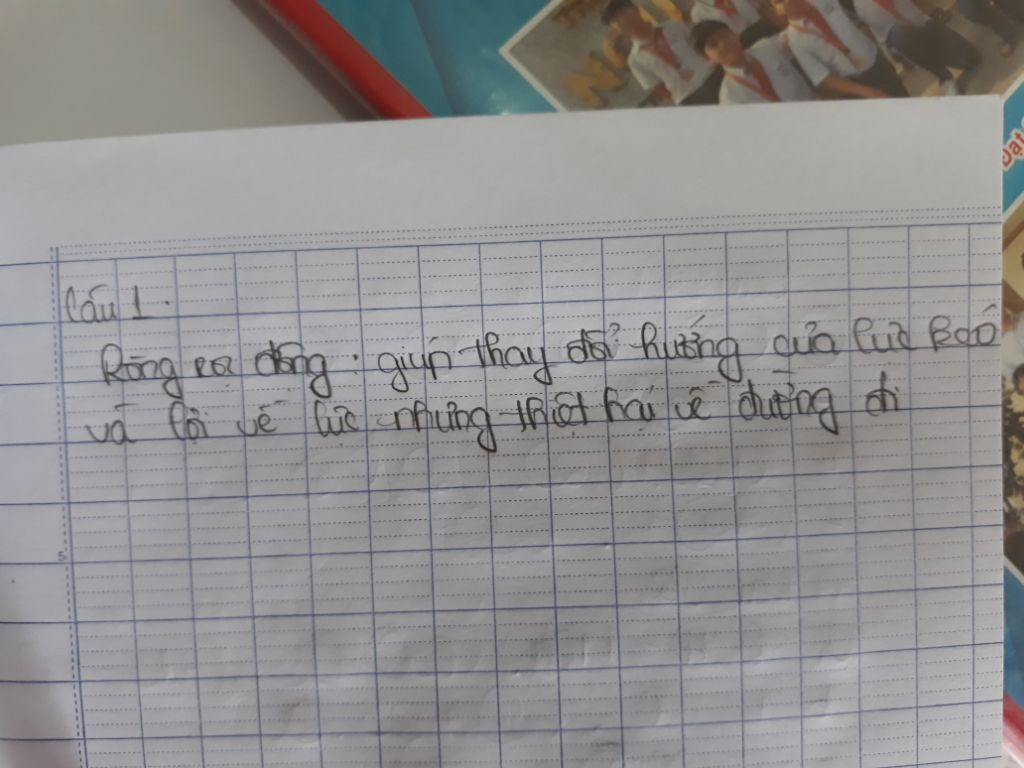 Câu 1.
Ròng rọc động : giúp thay đổi hướng của lực kéo
và lời về lực nhưng thiệt hại về đường đi
5
Đạt